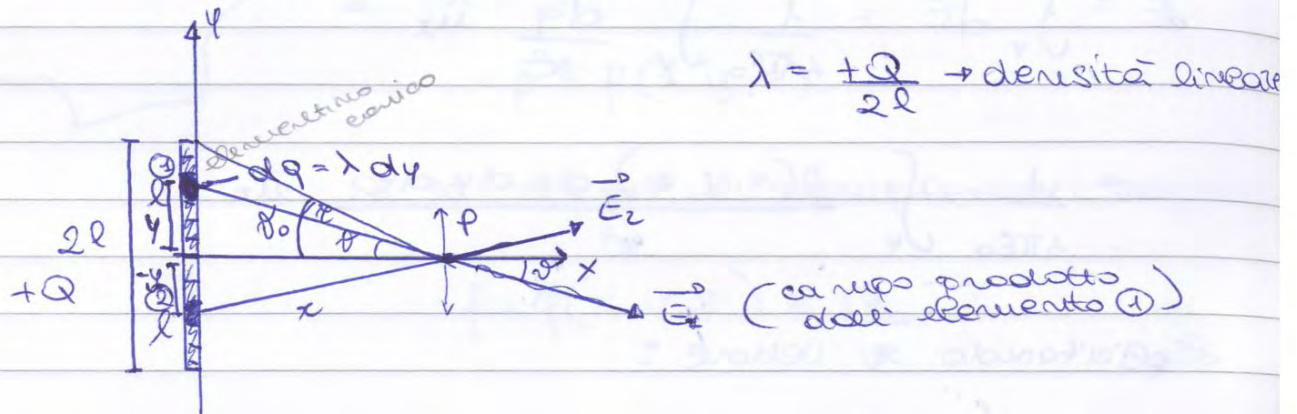 y
λ = +Q / 2l → densità lineare
elementino carico
① dq = λ dy
l
y
r
ϑ₀
ϑ
P
E₂
2l
+Q
x
ϑ
y
②
l
r
E₁ (campo prodotto dall' elemento ①)